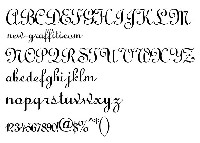 ABCDEFGHIJKLM
new graffiti.com
NOPQRSTUVWXYZ
abcdefghijklm
nopqrstuvwxyz
1234567890!@#$%^*()